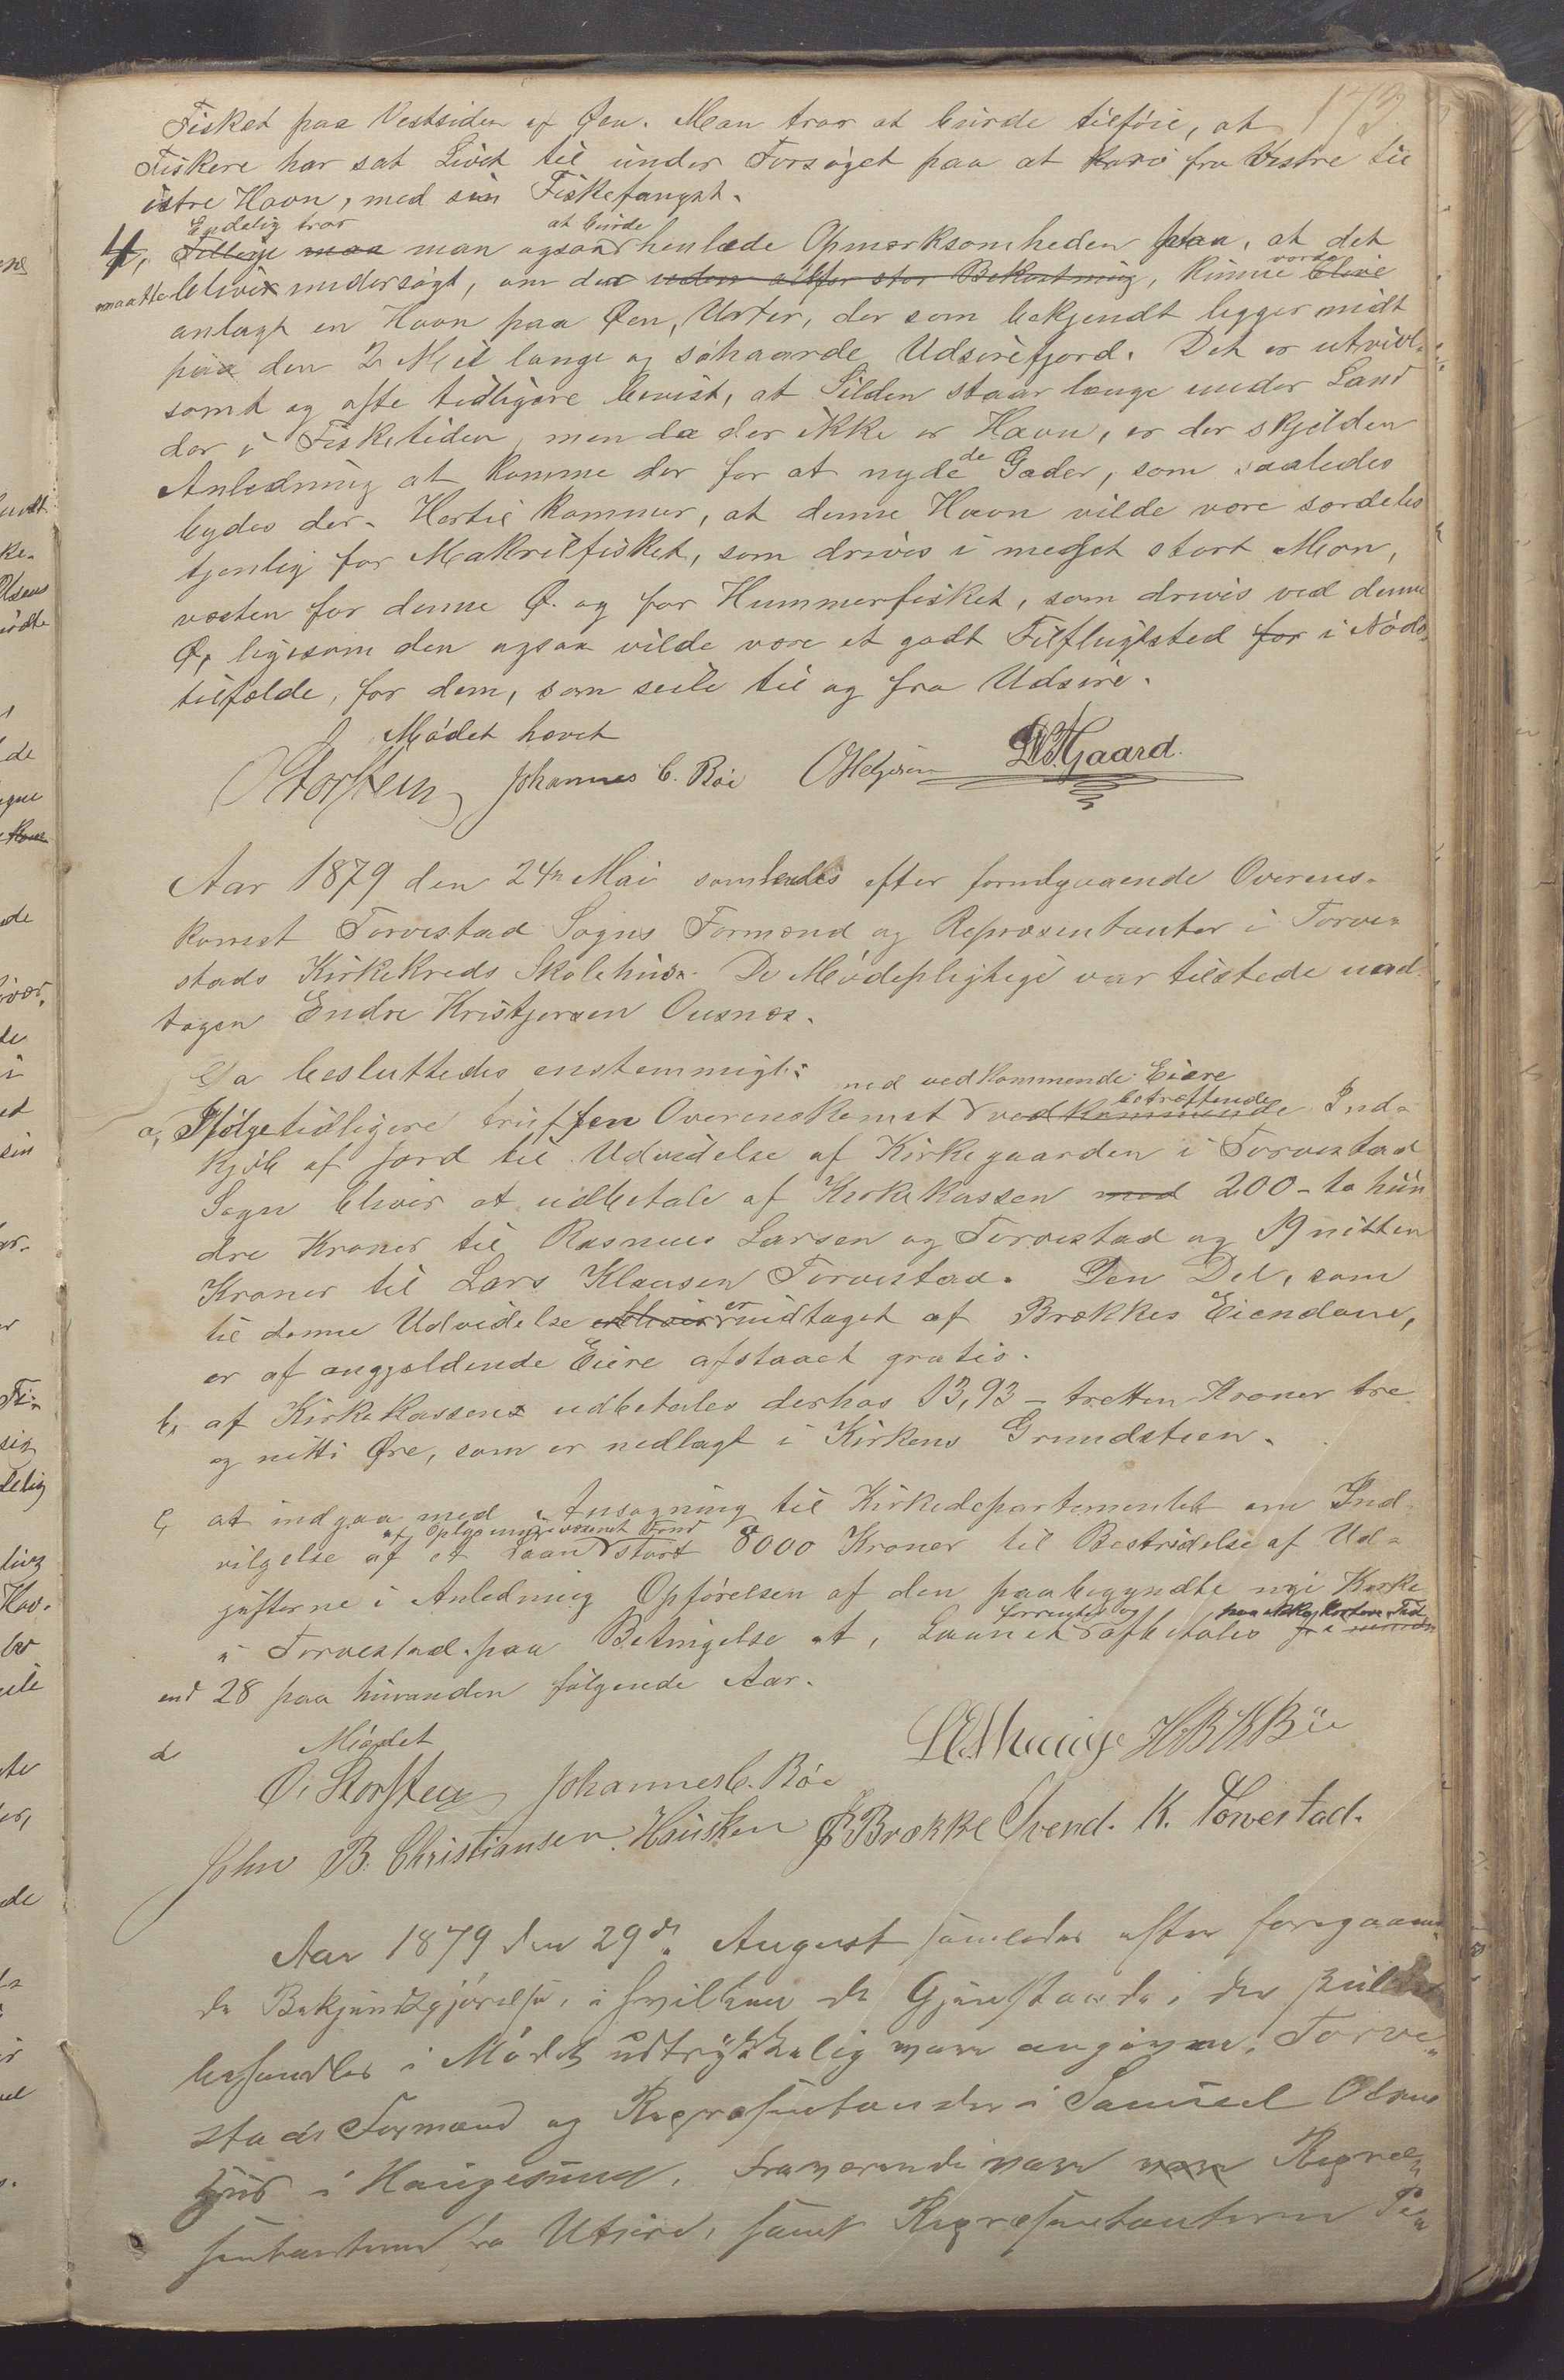 173.
Fisket paa Vestsiden af Øen. Man tror at burde tilføie, at
Fiskere har sat Livet til under Forsøget paa at Roro fra Vestre til
østre Havn, med sin Fiskefangst.
Endelig tror at burde
4, Tillige maa man ogsaa henlede Opmærksomheden paa, at det
maatte bliver undersøgt, om der uden altfor stor Bekostning, kunne vorde blive
anlagt en Havn paa Øen, Urter, der som bekjendt ligger midt
paa den 2 Mил lange og søhaarde Udsirefjord. Det er utvivl-
somt og ofte tidligere bevist, at Silden staar længe under Land
der i Fisketiden, men da der ikke er Havn, er der skjelden
Anledning at komme der for at nyde de Goder, som saaledes
bydes der. Hertil kommer, at denne Havn vilde være særdeles
tjenlig for Makrilfisket, som drives i meget stort Mon,
vesten for denne Ø. og for Hummerfisket, som drives ved denne
Ø, ligesom den ogsaa vilde være et godt Tilflugtsted for i Nøds-
tilfælde, for dem, som seile til og fra Udsire.
Mødet hævet
O Storsteen Johannes C. Bøe O Helgesen Gaard.
Aar 1879 den 24n Mai samledes efter forudgaaende Overens-
komst Torvestad Sogns Formænd og Repræsentanter i Torve-
stads Kirkekreds Skolehus. De Mødepligtige var tilstede und-
tagen Endre Kristjersen Ousnes.
Da besluttedes enstemmigt:
med vedkommende Eiere
a, Ifølge tidligere truffen Overenskomst vedkommende betræffende Ind-
kjøb af Jord til Udvidelse af Kirkegaarden i Torvestad
Sogn bliver at udbetale af Kirkekassen med 200 - to hun
dre Kroner til Rasmus Larsen og Torvestad og 19 nitten
Kroner til Lars Klausen Torvestad. Den Del, som
til denne Udvidelse er udtaget af Brækkes Eiendom,
er af angjældende Eiere afstaaet gratis.
b, af Kirkekassens udbetales derhos 13,93 - tretten Kroner tre
og nitti Øre, som er nedlagt i Kirkens Grundsteen.
c, at indgaa med Ansøgning til Kirkedepartementet om Ind-
af Oplysningsvæsenets Fond
vilgelse af et Laan stort 8000 Kroner til Bestridelse af Ud-
gifterne i Anledning Opførelsen af den paabegyndte nye Kirke
forrentes og paa ikke kortere Tid
i Torvestad paa Betingelse at, Laanet afbetales
end 28 paa hinanden følgende Aar.
d Mødet
O. Storsteen Johannes C. Bøe H B K Bøe
John B. Christiansen Hausken Brække Svend. K. Torvestad.
Aar 1879 den 29de August samledes efter foregaaen
de Bekjendtgjørelse, i hvilken de Gjenstande, der skulde
behandles i Mødet udtrykkelig vare angivne, Torve-
stads Formænd og Repræsentanter i Samuel Olsens
Hus i Haugesund. Fraværende vare Repræ-
sentanterne fra Utsire, samt Repræsentanterne